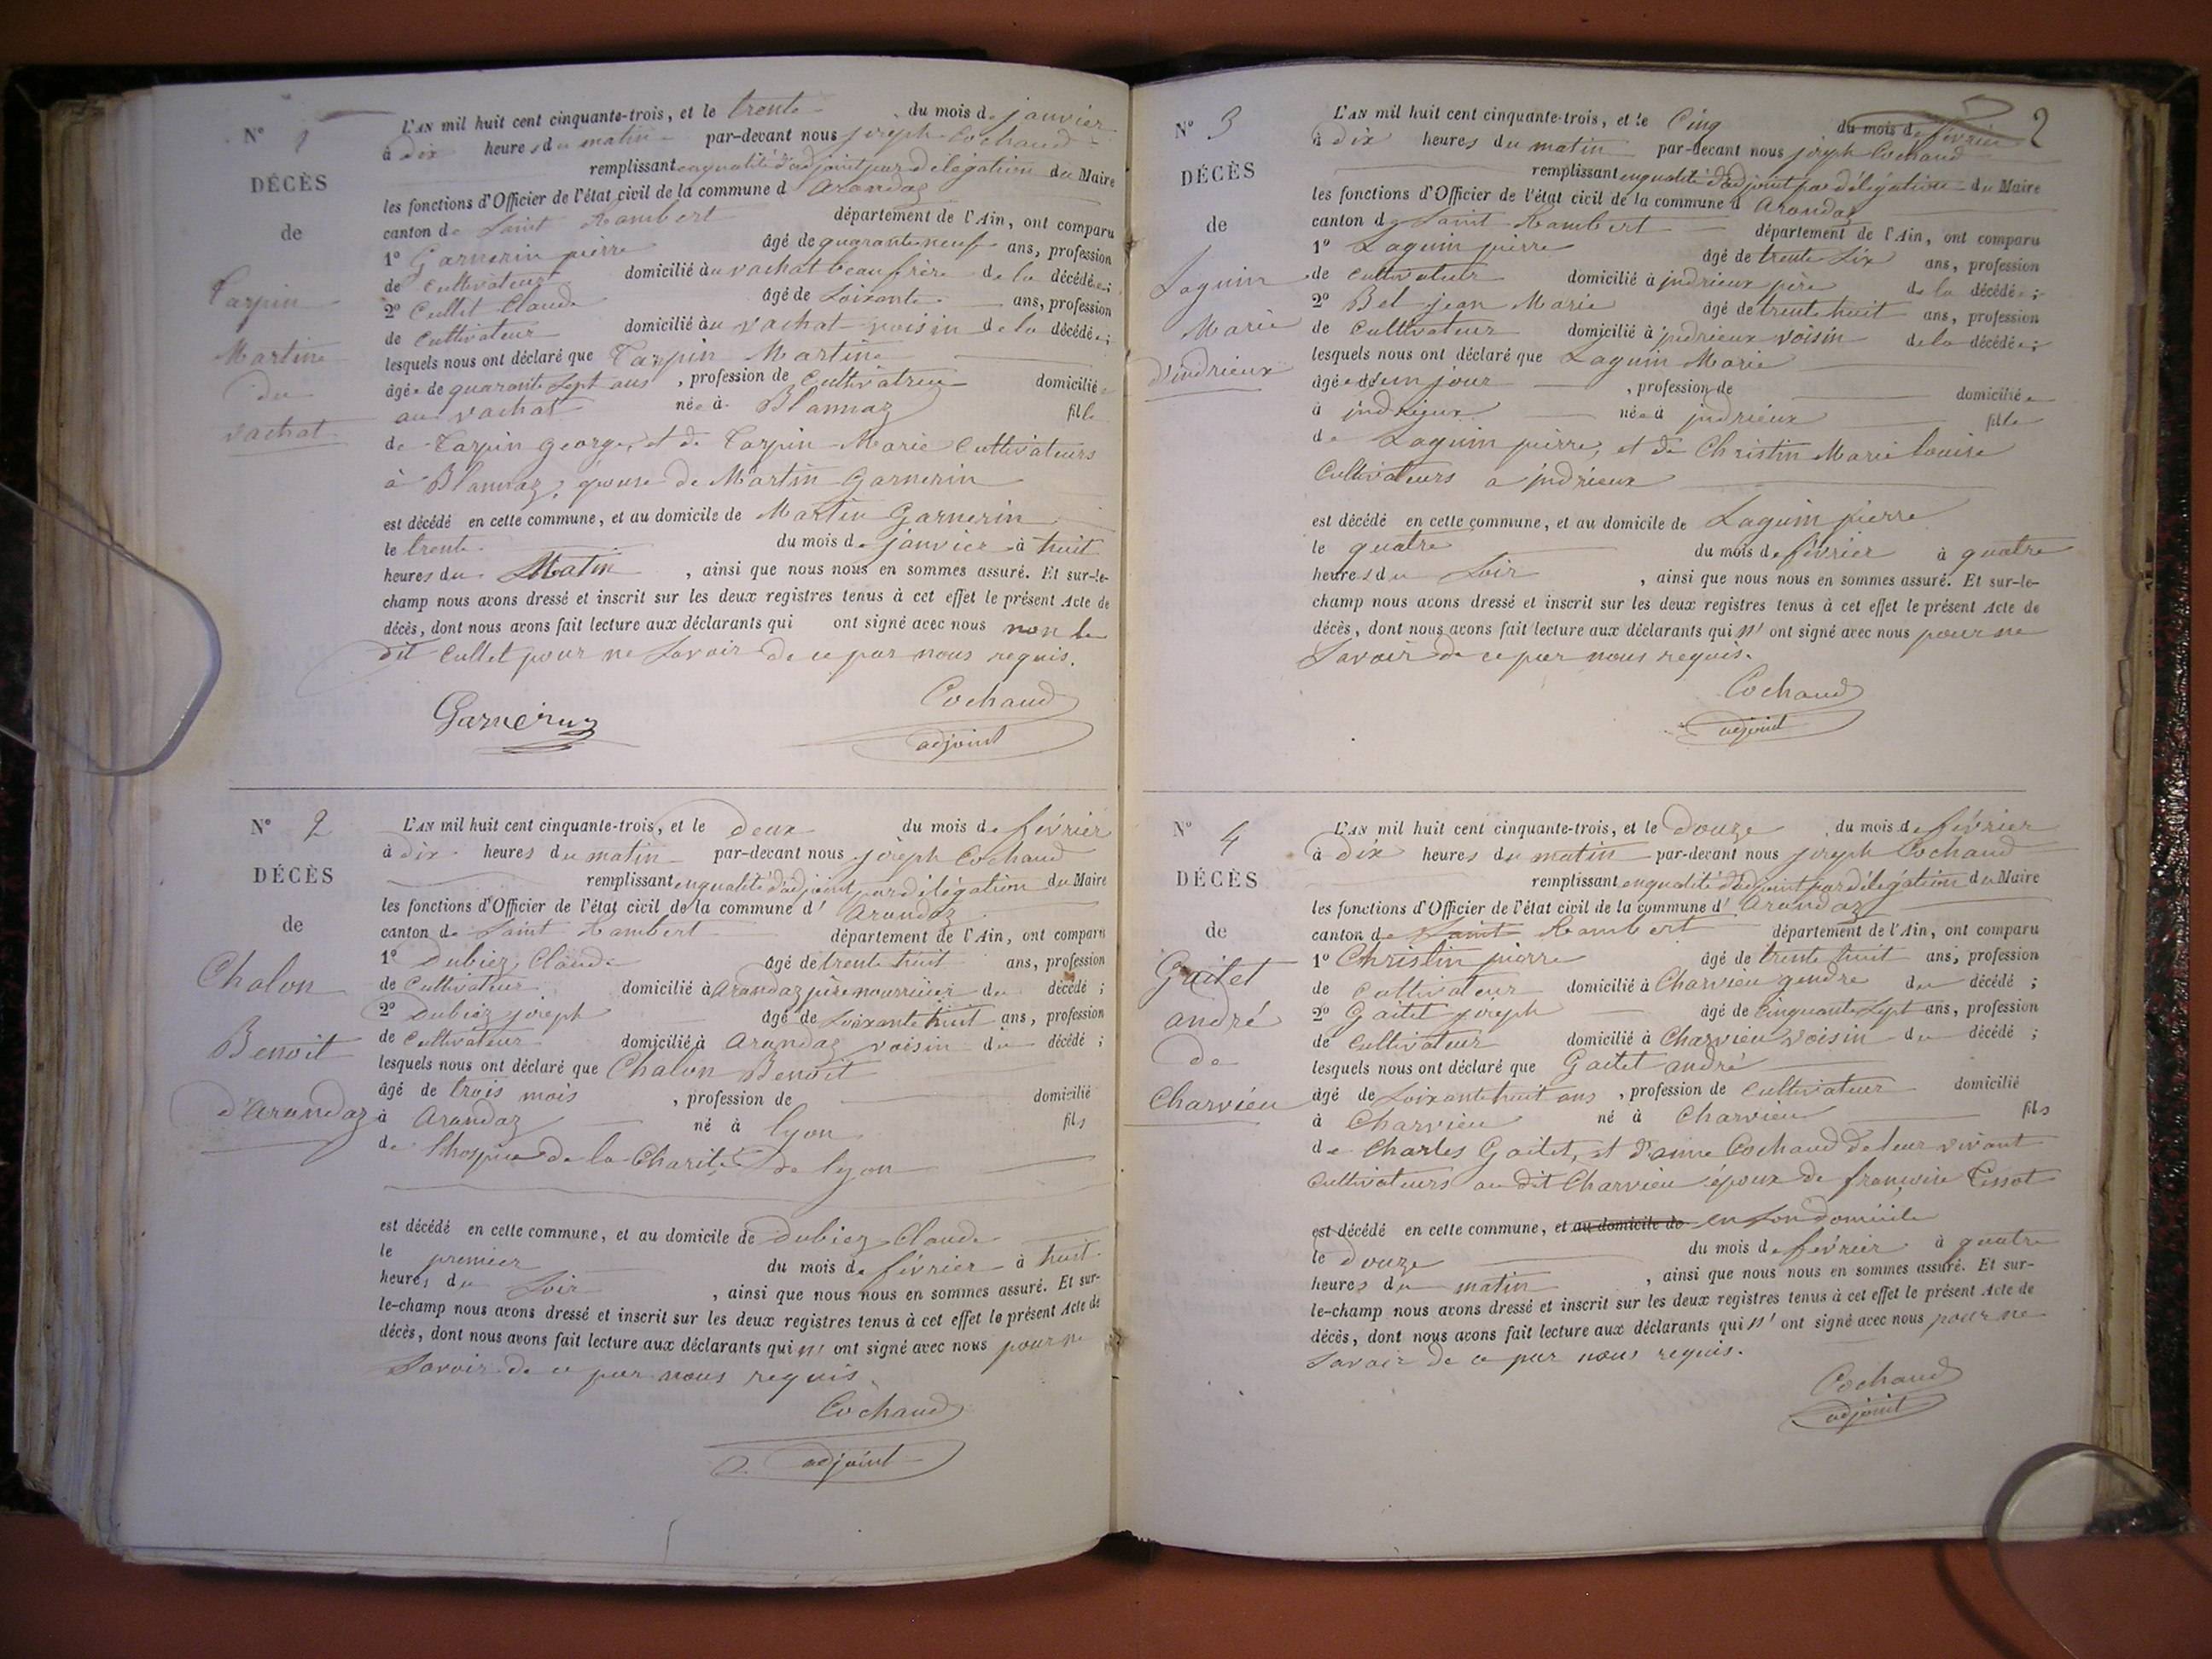 N° 1
DÉCÈS
de
Tarpin
Martine
du
Vachat
L'AN mil huit cent cinquante-trois, et le trente du mois de janvier
à dix heures du matin par-devant nous joseph Cochaud
remplissant en qualité d'adjoint par délégation du Maire
les fonctions d'Officier de l'état civil de la commune d Arandaz
canton de Saint Rambert département de l'Ain, ont comparu
1° Garnerin pierre âgé de quarante neuf ans, profession
de Cultivateur domicilié au vachat beau frère de la décédée;
2° Cullet Claude âgé de Soixante ans, profession
de Cultivateur domicilié au vachat voisin de la décédée;
lesquels nous ont déclaré que Tarpin Martine
âgée de quarante Sept ans, profession de Cultivatrice domiciliée
au vachat née à Blannaz fille
de Tarpin george, et de Tarpin Marie Cultivateurs
à Blannaz, épouse de Martin Garnerin
est décédé en cette commune, et au domicile de Martin Garnerin
le trente du mois de janvier à huit
heures du Matin, ainsi que nous nous en sommes assuré. Et sur-le-
champ nous avons dressé et inscrit sur les deux registres tenus à cet effet le présent Acte de
décès, dont nous avons fait lecture aux déclarants qui ont signé avec nous non le
dit Cullet pour ne Savoir de ce par nous requis.
Cochaud
adjoint
N° 2
DÉCÈS
de
Chalon
Benoit
d'Arandaz
L'AN mil huit cent cinquante-trois, et le deux du mois de février
à dix heures du matin par-devant nous joseph Cochaud
remplissant en qualité d'adjoint par délégation du Maire
les fonctions d'Officier de l'état civil de la commune d' Arandaz
canton de Saint Rambert département de l'Ain, ont comparu
1° Dubiez Claude âgé de trente huit ans, profession
de Cultivateur domicilié à Arandaz père nourricier du décédé;
2° Dubiez joseph âgé de Soixante huit ans, profession
de Cultivateur domicilié à Arandaz voisin du décédé;
lesquels nous ont déclaré que Chalon Benoit
âgé de trois mois, profession de domicilié
à Arandaz né à lyon fils
de l'hospice de la Charité de lyon
est décédé en cette commune, et au domicile de Dubiez Claude
le premier du mois de février à huit
heures du Soir, ainsi que nous nous en sommes assuré. Et sur-
le-champ nous avons dressé et inscrit sur les deux registres tenus à cet effet le présent Acte de
décès, dont nous avons fait lecture aux déclarants qui n' ont signé avec nous pour ne
Savoir de ce par nous requis.
Cochaud
adjoint
2
N° 3
DÉCÈS
de
Laguin
Marie
d'indrieux
L'AN mil huit cent cinquante-trois, et le Cinq du mois de février
à dix heures du matin par-devant nous joseph Cochaud
remplissant en qualité d'adjoint par délégation du Maire
les fonctions d'Officier de l'état civil de la commune d Arandaz
canton de Saint Rambert département de l'Ain, ont comparu
1° Laguin pierre âgé de trente Six ans, profession
de Cultivateur domicilié à indrieux père de la décédée;
2° Bel jean Marie âgé de trente huit ans, profession
de Cultivateur domicilié à indrieux voisin de la décédée;
lesquels nous ont déclaré que Laguin Marie
âgée d'un jour, profession de domiciliée
à indrieux née à indrieux fille
de Laguin pierre, et de Christin Marie louise
Cultivateurs a indrieux
est décédé en cette commune, et au domicile de Laguin pierre
le quatre du mois de février à quatre
heures du Soir, ainsi que nous nous en sommes assuré. Et sur-le-
champ nous avons dressé et inscrit sur les deux registres tenus à cet effet le présent Acte de
décès, dont nous avons fait lecture aux déclarants qui n' ont signé avec nous pour ne
Savoir de ce par nous requis.
Cochaud
adjoint
N° 4
DÉCÈS
de
Gaitet
andré
de
Charvieu
L'AN mil huit cent cinquante-trois, et le Douze du mois de février
à dix heures du matin par-devant nous joseph Cochaud
remplissant en qualité d'adjoint par délégation du Maire
les fonctions d'Officier de l'état civil de la commune d' Arandaz
canton de Saint Rambert département de l'Ain, ont comparu
1° Christin pierre âgé de trente huit ans, profession
de Cultivateur domicilié à Charvieu gendre du décédé;
2° Gaitet joseph âgé de Cinquante Sept ans, profession
de Cultivateur domicilié à Charvieu voisin du décédé;
lesquels nous ont déclaré que Gaitet andré
âgé de Soixante huit ans, profession de Cultivateur domicilié
à Charvieu né à Charvieu fils
de Charles Gaitet, et d'anne Cochaud de leur vivant
Cultivateurs au dit Charvieu époux de françoise Tissot
est décédé en cette commune, et au domicile de en Son domicile
le Douze du mois de février à quatre
heures du matin, ainsi que nous nous en sommes assuré. Et sur-
le-champ nous avons dressé et inscrit sur les deux registres tenus à cet effet le présent Acte de
décès, dont nous avons fait lecture aux déclarants qui n' ont signé avec nous pour ne
Savoir de ce par nous requis.
Cochaud
adjoint